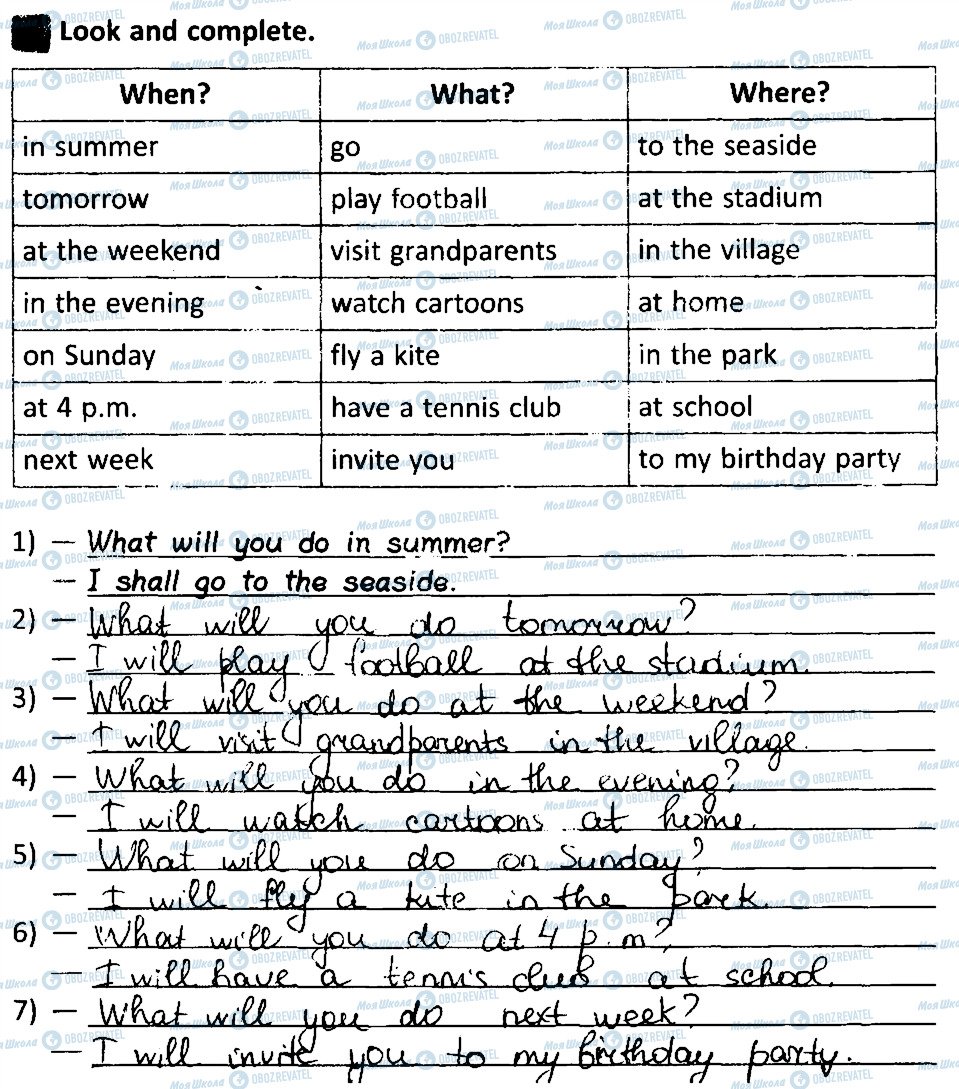 Look and complete.
When? What? Where?
in summer go to the seaside
tomorrow play football at the stadium
at the weekend visit grandparents in the village
in the evening watch cartoons at home
on Sunday fly a kite in the park
at 4 p.m. have a tennis club at school
next week invite you to my birthday party
1) – What will you do in summer?
– I shall go to the seaside.
2) – What will you do tomorrow?
– I will play football at the stadium.
3) – What will you do at the weekend?
– I will visit grandparents in the village.
4) – What will you do in the evening?
– I will watch cartoons at home.
5) – What will you do on Sunday?
– I will fly a kite in the park.
6) – What will you do at 4 p.m?
– I will have a tennis club at school.
7) – What will you do next week?
– I will invite you to my birthday party.
МояШкола OBOZREVATEL